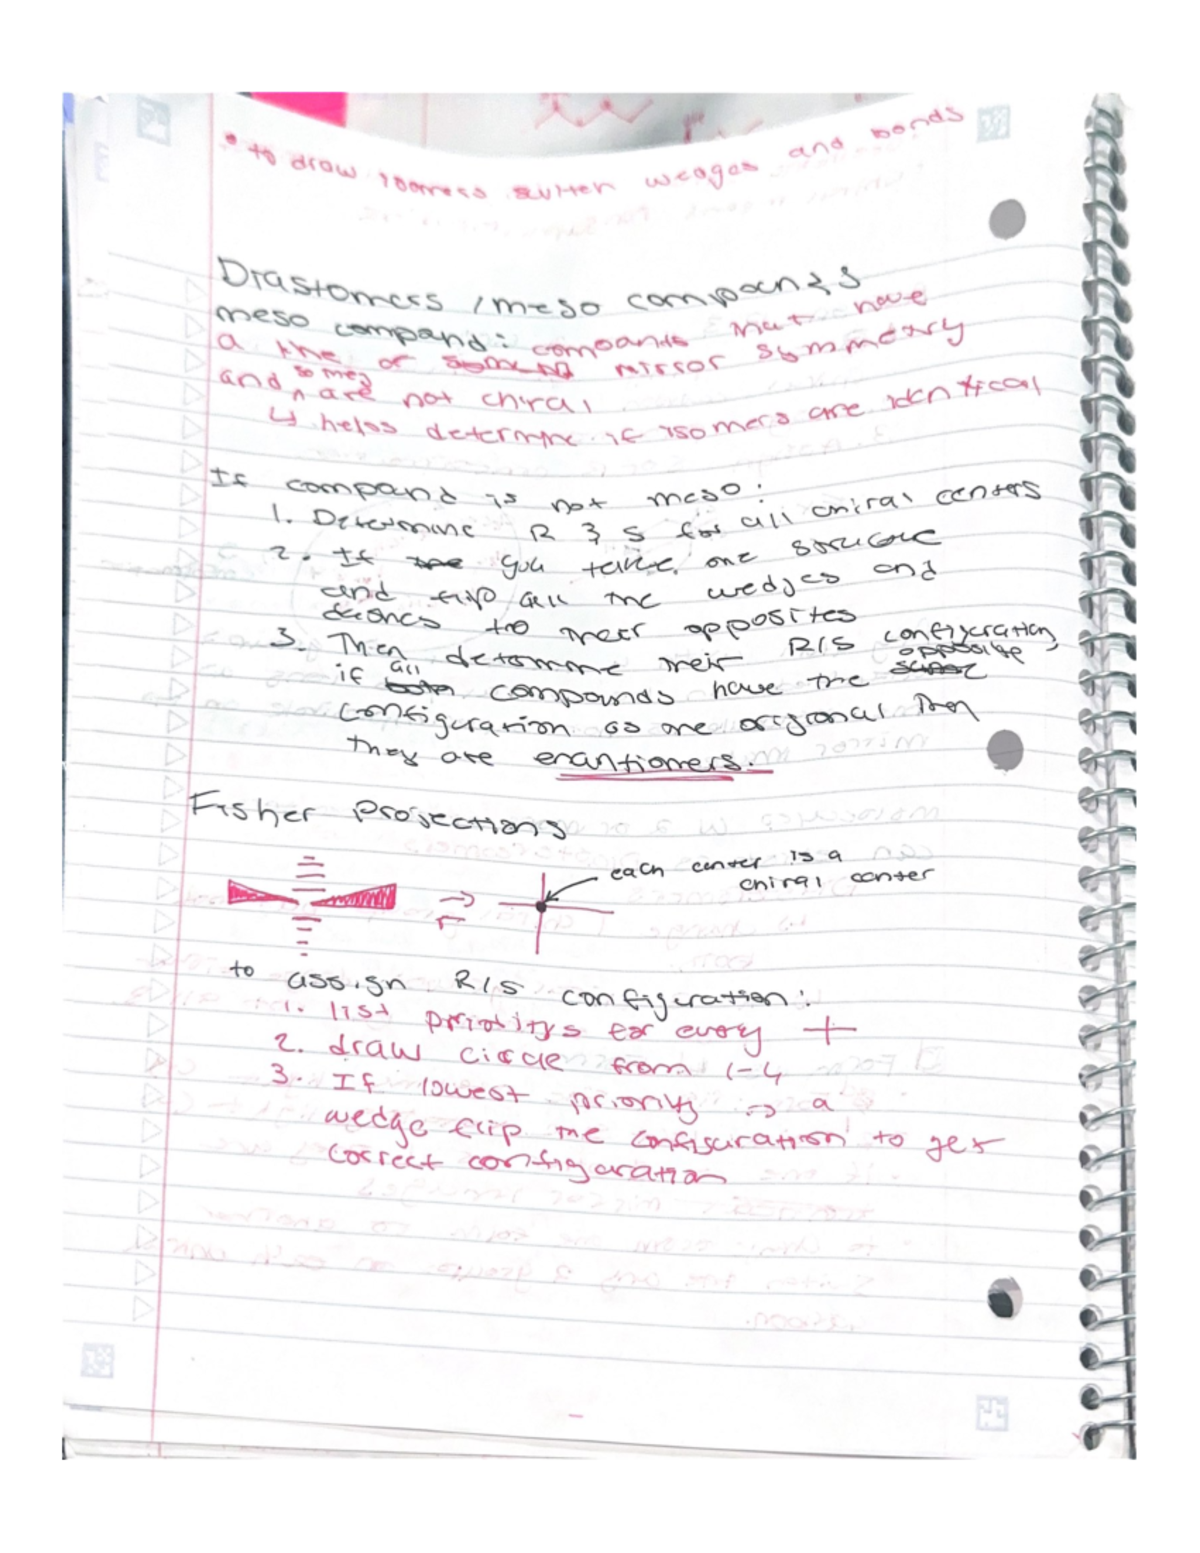 • to draw isomers switch wedges and bonds
Diastomers / meso compounds
meso compand: compounds that have
a line of mirror symmetry
and somes are not chiral
↳ helps determine if isomers are identical
If compand is not meso:
1. Determine R & S for all chiral centers
2. If you take one structure
and flip all the wedges and
dashes to their opposites
3. Then determine their R/S configuration,
if all compounds have the opposite
configuration as one original then
they are enantiomers.
Fisher Projections
each center is a
chiral center
to assign R/S configuration:
1. list prioritys for every +
2. draw circle from 1-4
3. If lowest priority → a
wedge flip the configuration to get
correct configuration